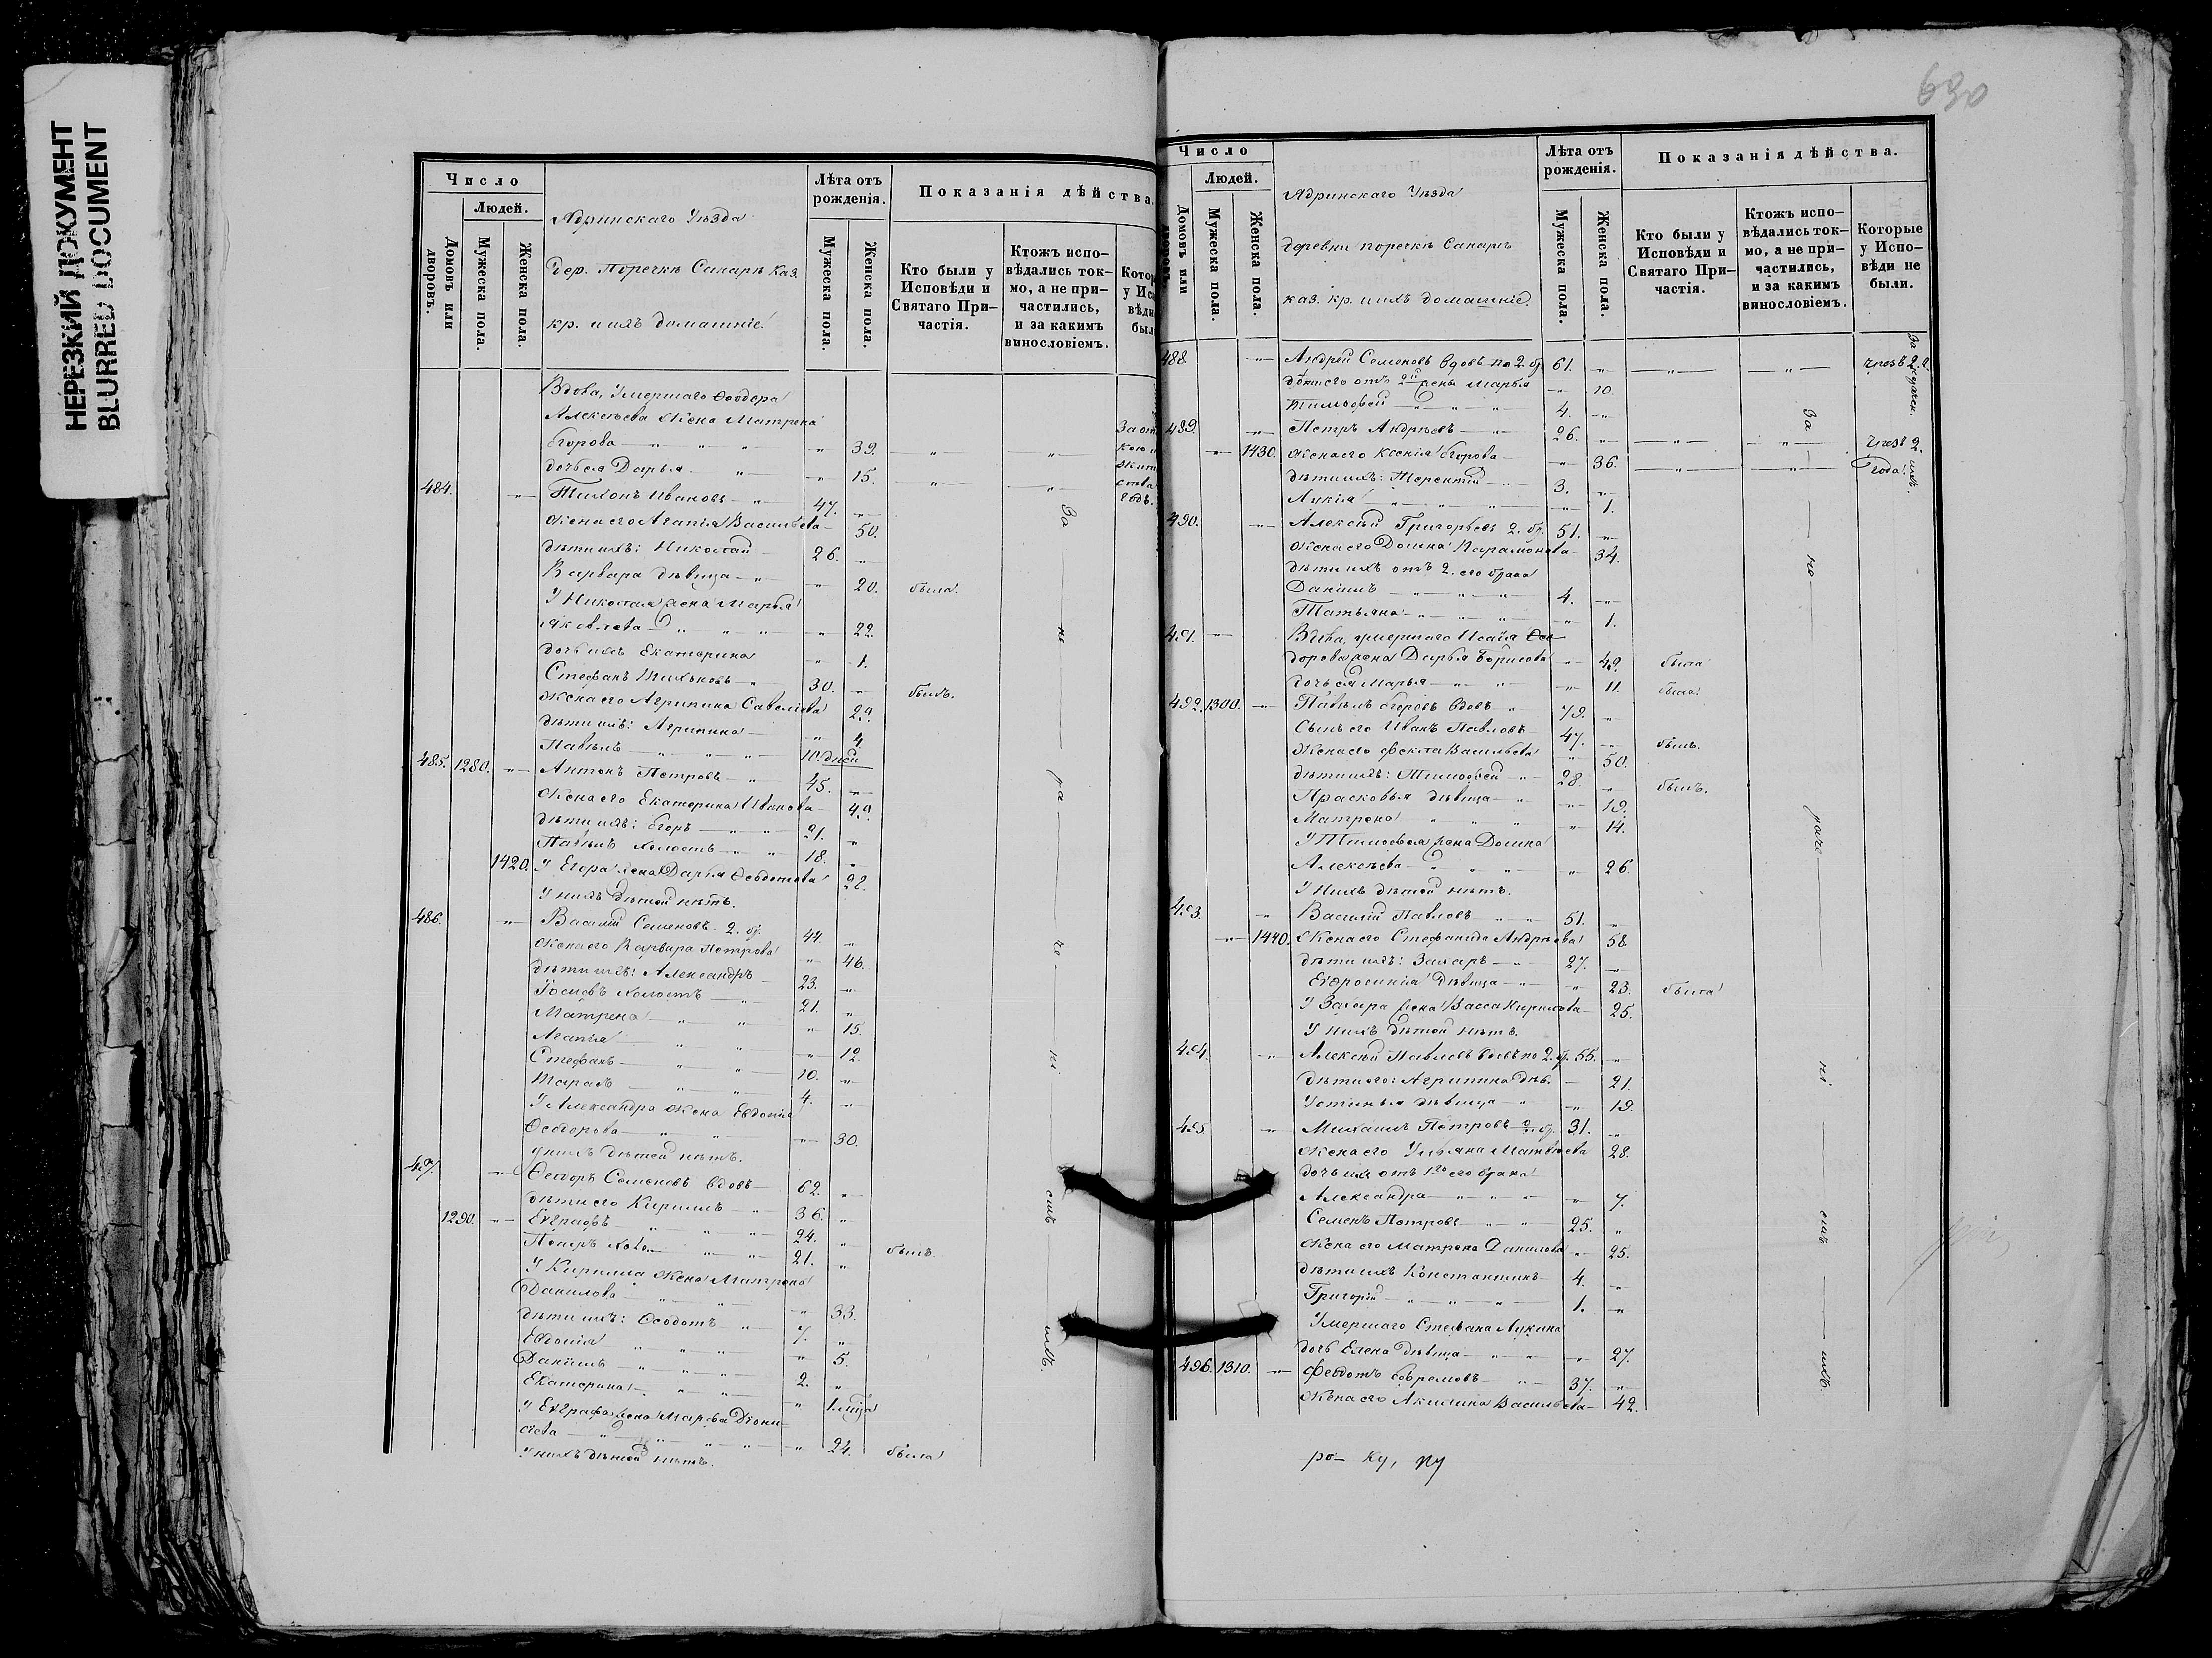 НЕРЕЗКИЙ ДОКУМЕНТ
BLURRED DOCUMENT
Число
Людей.
Домовъ или дворовъ.
Мужеска пола.
Женска пола.
Ядринскаго Уѣзда
дер. Поречкѣ Сапаръ каз.
кр. и ихъ домашніе.
Лѣта отъ рожденія.
Мужеска пола.
Женска пола.
Показанія дѣйства.
Кто были у Исповѣди и Святаго Причастія.
Ктожъ исповѣдались токмо, а не причастились, и за какимъ винословіемъ.
Вдова, Умершаго Ѳеодора
Алексѣева Жена Матрена
Егорова 39.
дочь ея Дарья 15.
484. Тихонъ Ивановъ 47.
Жена его Агапія Васильева 50.
дѣти ихъ: Николай 26.
Варвара дѣвица 20. была.
У Николая жена Марья
Яковлева 22.
дочь ихъ Екатерина 1.
Стефанъ Тихоновъ 30. былъ.
Жена его Агрипина Савельева 29.
дѣти ихъ: Агрипина 4.
Павелъ 10. дней
485. 1280. Антонъ Петровъ 45.
Жена его Екатерина Иванова 49.
дѣти ихъ: Егоръ 21.
Павелъ холостъ 18.
1420. У Егора жена Дарья Ѳеодотова 22.
У нихъ дѣтей нѣтъ.
486. Василій Семеновъ 2. бр. 44.
Жена его Варвара Петрова 46.
дѣти ихъ: Александръ 23.
Іосифъ холостъ 21.
Матрена 15.
Агапія 12.
Стефанъ 10.
Тарасъ 4.
У Александра Жена Евдокія
Ѳеодорова 30.
у нихъ дѣтей нѣтъ.
487. Ѳеодоръ Семеновъ вдовъ 62.
дѣти его Кирилъ 36.
1290. Евграфъ 24.
21. былъ.
У Кирилла Жена Матрена
Данилова 33.
дѣти ихъ: Ѳеодотъ 7.
Евдокія 5.
Даніилъ 2.
Екатерина 1.
У Евграфа жена Марѳа Діони-
сіева 24. была
У нихъ дѣтей нѣтъ.
За не ра че ні емъ ихъ.
630
Число
Людей.
Домовъ или дворовъ.
Мужеска пола.
Женска пола.
Ядринскаго Уѣзда
деревни Поречкѣ Сапаръ
каз. кр. и ихъ домашніе.
Лѣта отъ рожденія.
Мужеска пола.
Женска пола.
Показанія дѣйства.
Кто были у Исповѣди и Святаго Причастія.
Ктожъ исповѣдались токмо, а не причастились, и за какимъ винословіемъ.
Которые у Исповѣди не были.
488. Андрей Семеновъ вдовъ по 2. бр. 61.
дѣти его отъ жены Марья 10.
Тимоѳей 4.
489. Петръ Андреевъ 26.
1430. Жена его Ксенія Егорова 36.
дѣти ихъ: Терентій 3.
Лукія 1.
490. Алексѣй Григорьевъ 2. бр. 51.
Жена его Домна Парамонова 34.
дѣти ихъ отъ 2. его брака
Даніилъ 4.
Татьяна 1.
491. Вдова, умершаго Исаія Ѳео-
дорова жена Дарья Борисова 49. была
дочь ея Марья 11. была.
492. 1300. Павелъ Егоровъ вдовъ 79.
Сынъ его Иванъ Павловъ 47. былъ.
Жена его Ѳекла Васильева 50.
дѣти ихъ: Тимоѳей 28. былъ.
Прасковья дѣвица 19.
Матрена 14.
У Тимоѳея жена Домна
Алексѣева 26.
У нихъ дѣтей нѣтъ.
493. Василій Павловъ 51.
1440. Жена его Стефанида Андреева 58.
дѣти ихъ: Захаръ 27.
Евфросинія дѣвица 23. была
У Захара жена Васса Кирилова 25.
У нихъ дѣтей нѣтъ.
494. Алексѣй Павловъ вдовъ по 2. бр. 55.
дѣти его: Агрипина дѣв. 21.
Устинья дѣвица 19.
495. Михаилъ Петровъ 2. бр. 31.
Жена его Ульяна Матвѣева 28.
дочь ихъ отъ 1го его брака
Александра 7.
Семенъ Петровъ 25.
Жена его Матрена Данилова 25.
дѣти ихъ Константинъ 4.
Григорій 1.
Умершаго Стефана Лукина
дочь Елена дѣвица 27.
496. 1310. Ѳеодотъ Ефремовъ 37.
Жена его Акилина Васильева 42.
За не раче ні емъ ихъ.